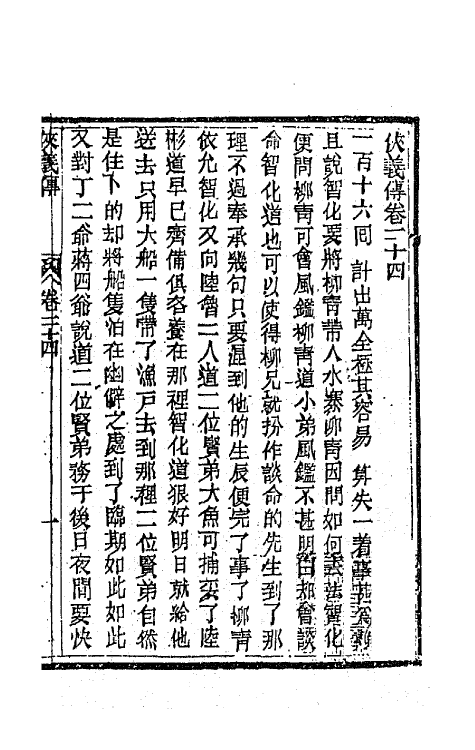 俠義傳卷二十四
一百十六回　計出萬全極其容易　算失一着事甚爲難
且說智化要將柳青帶入水寨柳青因問如何去法智化
便問柳青可會風鑑柳青道小弟風鑑不甚明白却會談
命智化道也可以使得柳兄就扮作談命的先生到了那
理不過奉承幾句只要混到他的生辰便完了事了柳青
依允智化又向陸魯二人道二位賢弟大魚可捕妥了陸
彬道早已齊備俱各養在那裡智化道狠好明日就給他
送去只用大船一隻帶了漁戸去到那裡二位賢弟自然
是住下的却將船隻泊在幽僻之處到了臨期如此如此
又對丁二爺蔣四爺說道二位賢弟務于後日夜間要快
俠義傳　卷二十四　一